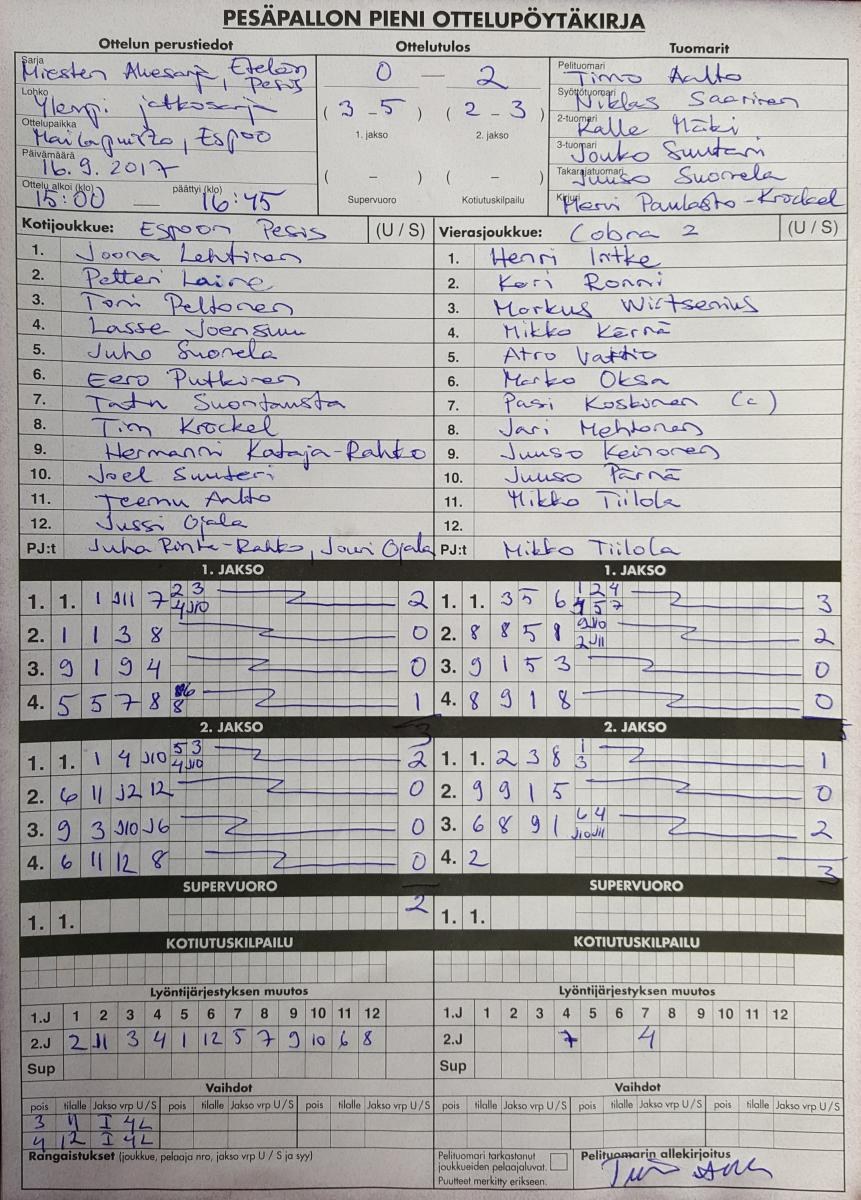 PESÄPALLON PIENI OTTELUPÖYTÄKIRJA
Ottelun perustiedot
Ottelutulos
Tuomarit
Sarja
Miesten Aluesarja, Etelän Pesis
Lohko
Ylempi jatkosarja
Ottelupaikka
Mailapuisto, Espoo
Päivämäärä
16.9.2017
Ottelu alkoi (klo) päättyi (klo)
15:00 — 16:45
0 — 2
(3-5) (2-3)
1. jakso 2. jakso
( - ) ( - )
Supervuoro Kotiutuskilpailu
Pelituomari
Timo Aalto
Syöttötuomari
Niklas Saarinen
2-tuomari
Kalle Mäki
3-tuomari
Jouko Suuteri
Takarajatuomari
Juuso Suonela
Kirjuri
Mervi Paulasto-Kröckel
Kotijoukkue: Espoon Pesis (U / S)
1. Joona Lehtinen
2. Petteri Laine
3. Toni Peltonen
4. Lasse Joensuu
5. Juho Suonela
6. Eero Putkinen
7. Tatu Suontausta
8. Tim Kröckel
9. Hermanni Kataja-Rahko
10. Joel Suuteri
11. Teemu Aalto
12. Jussi Ojala
PJ:t Juha Rinta-Rahko, Jouri Ojala
Vierasjoukkue: Cobra 2 (U / S)
1. Henri Intke
2. Kari Ronni
3. Markus Wirtsenius
4. Mikko Kärnä
5. Atro Vattio
6. Marko Oksa
7. Pasi Koskinen (c)
8. Jari Mehtonen
9. Juuso Keinonen
10. Juuso Pärnä
11. Mikko Tiilola
12.
PJ:t Mikko Tiilola
1. JAKSO
1. 1. 1 J11 7 2 3 4 J10 2
2. 1 1 3 8 0
3. 9 1 9 4 0
4. 5 5 7 8 8 1
3
1. JAKSO
1. 1. 3 5 6 1 2 4 5 7 3
2. 8 8 5 1 9 J10 2 J11 2
3. 9 1 5 3 0
4. 8 9 1 8 0
5
2. JAKSO
1. 1. 1 4 J10 5 3 4 J10 2
2. 6 11 J2 12 0
3. 9 3 J10 J6 0
4. 6 11 12 8 0
2
2. JAKSO
1. 1. 2 3 8 1 3 1
2. 9 9 1 5 0
3. 6 8 9 1 6 4 J10 J11 2
4. 2
3
SUPERVUORO
1. 1.
SUPERVUORO
1. 1.
KOTIUTUSKILPAILU
KOTIUTUSKILPAILU
Lyöntijärjestyksen muutos
1.J 1 2 3 4 5 6 7 8 9 10 11 12
2.J 2 J1 3 4 1 12 5 7 9 10 6 8
Sup
Lyöntijärjestyksen muutos
1.J 1 2 3 4 5 6 7 8 9 10 11 12
2.J 7 4
Sup
Vaihdot
pois tilalle Jakso vrp U / S pois tilalle Jakso vrp U / S pois tilalle Jakso vrp U / S
3 11 I 4L
4 12 I 4L
Vaihdot
pois tilalle Jakso vrp U / S pois tilalle Jakso vrp U / S pois tilalle Jakso vrp U / S
Rangaistukset (joukkue, pelaaja nro, jakso vrp U / S ja syy)
Pelituomari tarkastanut
joukkueiden pelaajaluvat.
Puutteet merkitty erikseen.
Pelituomarin allekirjoitus